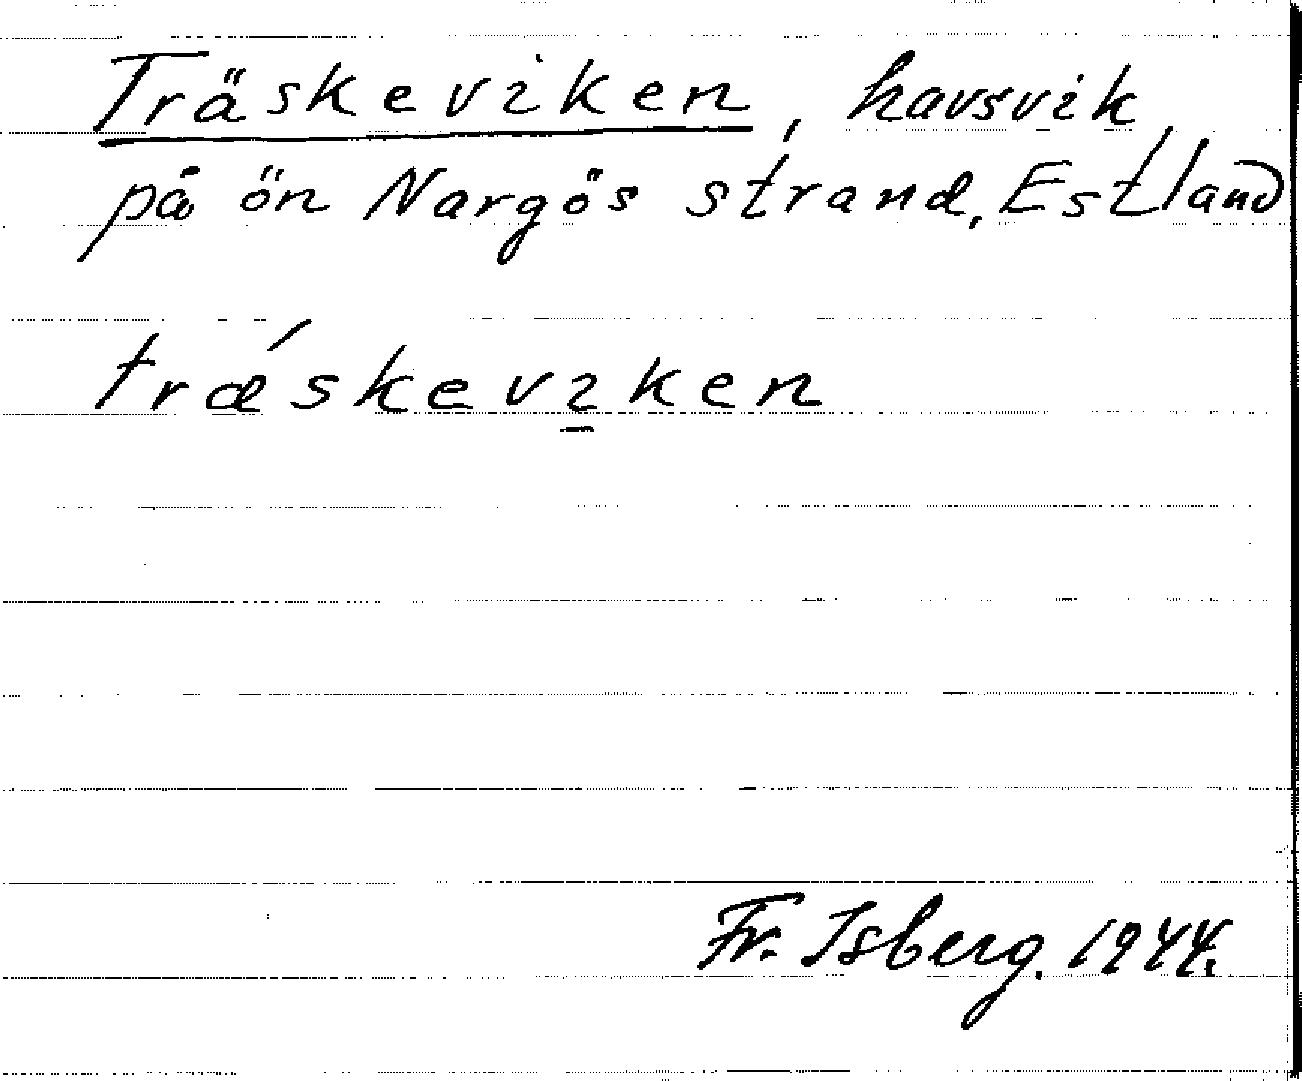 Träskeviken, havsvik
på ön Nargös strand, Estland
trǽskevi̱ken
Fr. Isberg. 1944.